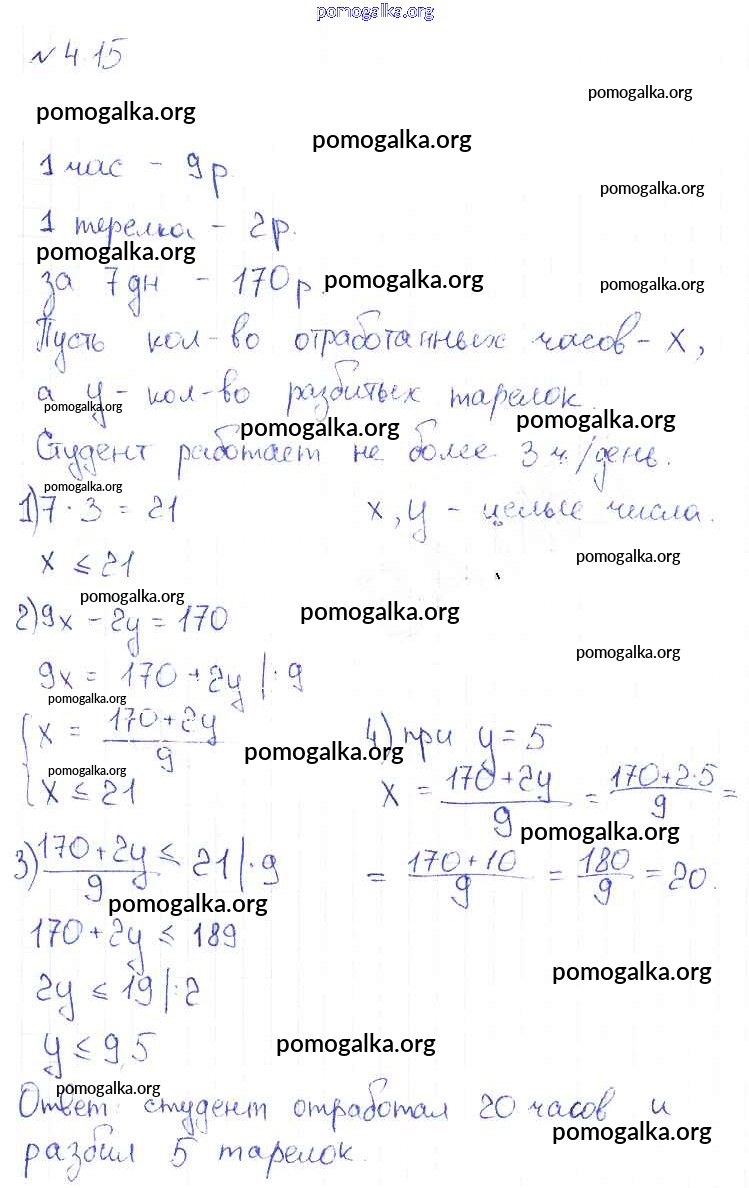 pomogalka.org
№ 4.15
pomogalka.org
pomogalka.org
pomogalka.org
1 час - 9 р.
pomogalka.org
1 терелка - 2 р.
pomogalka.org
за 7 дн - 170 р.
pomogalka.org
pomogalka.org
Пусть кол-во отработанных часов - x,
а y - кол-во разбитых тарелок.
pomogalka.org
pomogalka.org
pomogalka.org
Студент работает не более 3 ч./день.
pomogalka.org
1) 7 · 3 = 21 x, y - целые числа.
x ≤ 21
pomogalka.org
pomogalka.org
pomogalka.org
2) 9x - 2y = 170
pomogalka.org
9x = 170 + 2y |: 9
pomogalka.org
{ x = (170 + 2y)/9
x ≤ 21
pomogalka.org
pomogalka.org
4) при y = 5
x = (170 + 2y)/9 = (170 + 2·5)/9 =
pomogalka.org
= (170 + 10)/9 = 180/9 = 20.
3) (170 + 2y)/9 ≤ 21 | · 9
pomogalka.org
170 + 2y ≤ 189
pomogalka.org
2y ≤ 19 |: 2
y ≤ 9,5
pomogalka.org
pomogalka.org
Ответ: студент отработал 20 часов и
pomogalka.org
разбил 5 тарелок.